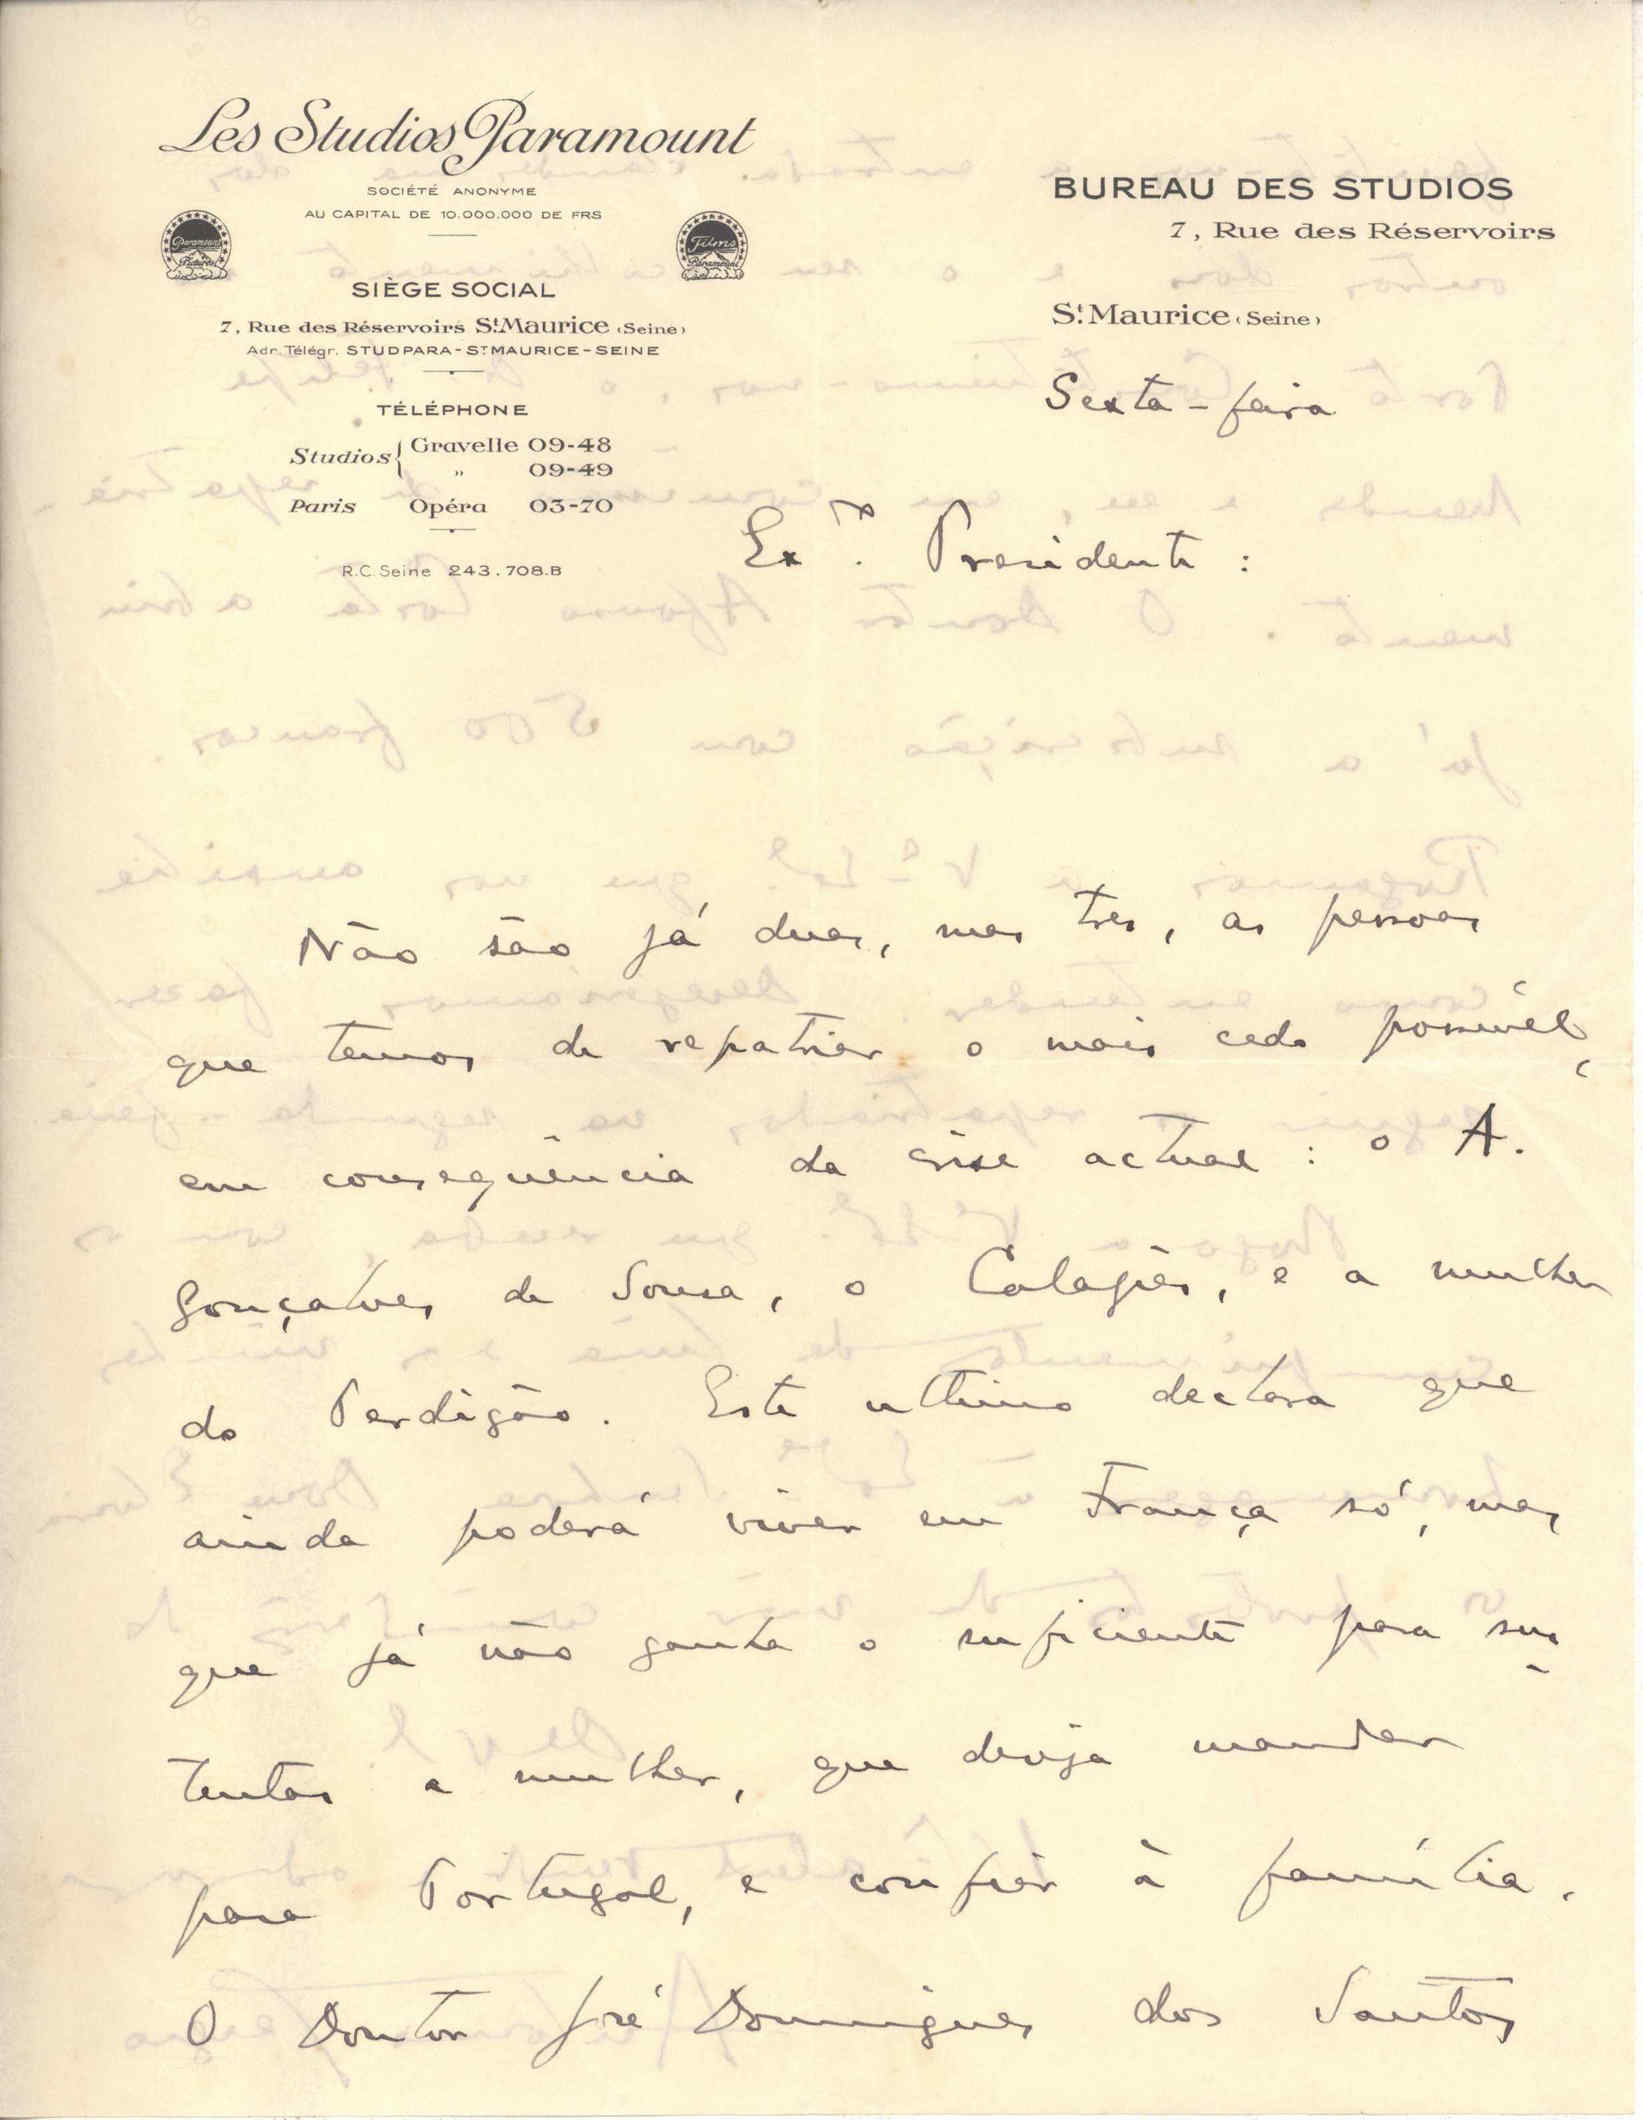 Les Studios Paramount
SOCIÉTÉ ANONYME
AU CAPITAL DE 10.000.000 DE FRS
Paramount Pictures
Films Paramount
SIÈGE SOCIAL
7, Rue des Réservoirs St. Maurice (Seine)
Adr. Télégr. STUDPARA-ST MAURICE-SEINE
TÉLÉPHONE
Studios { Gravelle 09-48
" 09-49
Paris Opéra 03-70
R.C. Seine 243.708.B
BUREAU DES STUDIOS
7, Rue des Réservoirs
St. Maurice (Seine)
Sexta-feira
Exmo. Presidente :
Não são já duas, mas tres, as pessoas
que temos de repatriar o mais cedo possível,
em conseqüência da crise actual : o A.
Gonçalves de Sousa, o Calapês, e a mulher
do Perdigão. Este ultimo declara que
ainda poderá viver em França só, mas
que já não ganha o suficiente para sus-
tentar a mulher, que deseja mandar
para Portugal, e confiar à família.
O Doutor José Domingues dos Santos